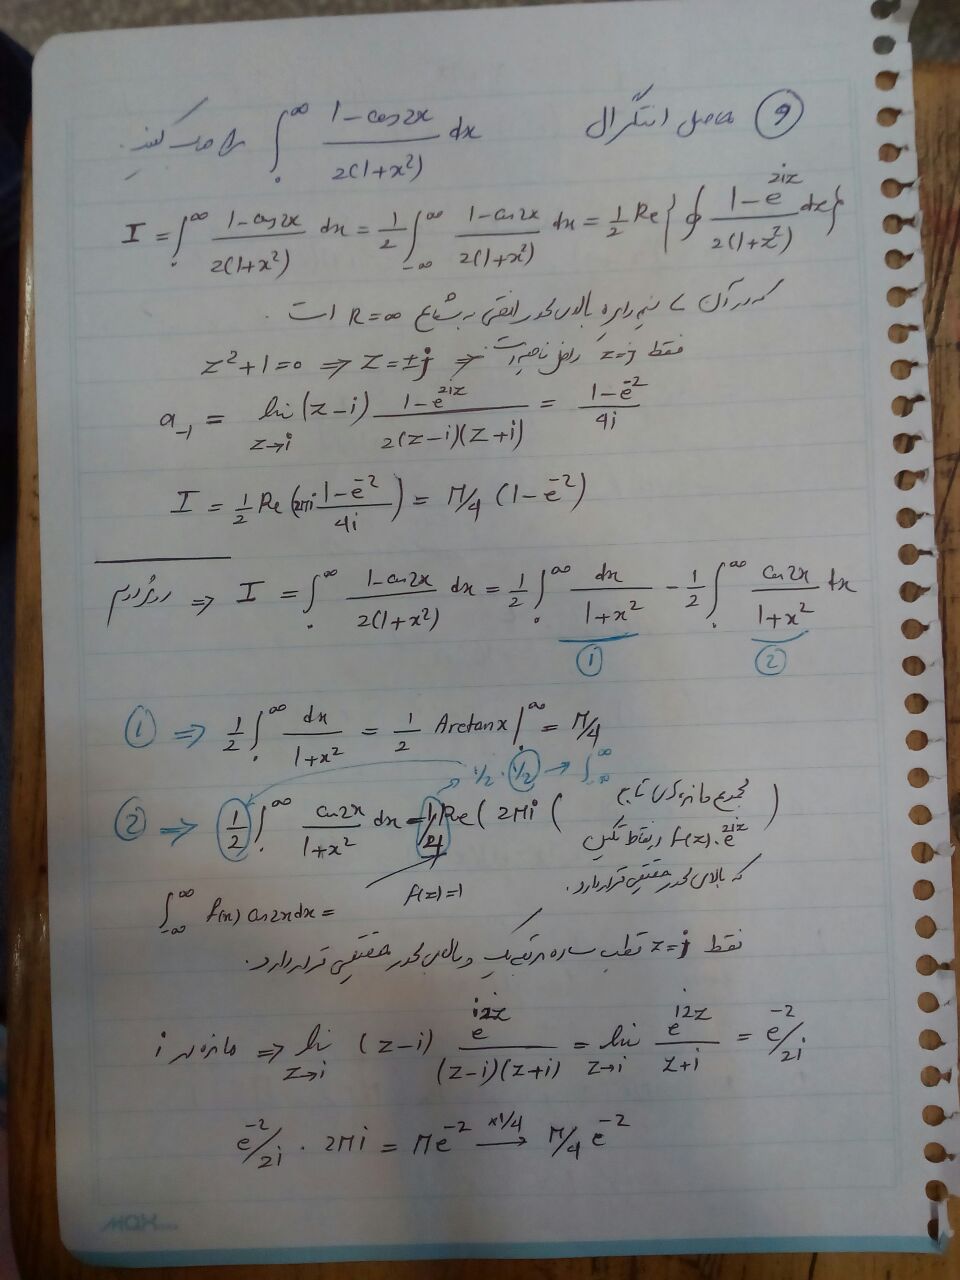 ۹ حاصل انتگرال ∫₀^∞ (1-cos2x)/(2(1+x²)) dx را حساب کنید.
I = ∫₀^∞ (1-cos2x)/(2(1+x²)) dx = 1/2 ∫_{-∞}^∞ (1-cos2x)/(2(1+x²)) dx = 1/2 Re{∮ (1-e^{2iz})/(2(1+z²)) dz}
که در آن نیم دایره بالای محور افقی به شعاع R=∞ است.
z²+1=0 ⇒ z=±j ⇒ فقط z=j داخل ناحیه است
a₋₁ = lim_{z→i} (z-i) (1-e^{2iz})/(2(z-i)(z+i)) = (1-e⁻²)/4i
I = 1/2 Re(2πi (1-e⁻²)/4i) = π/4 (1-e⁻²)
روش دوم ⇒ I = ∫₀^∞ (1-cos2x)/(2(1+x²)) dx = 1/2 ∫₀^∞ dx/(1+x²) - 1/2 ∫₀^∞ cos2x/(1+x²) dx
① ②
① ⇒ 1/2 ∫₀^∞ dx/(1+x²) = 1/2 Arctanx |₀^∞ = π/4
1/2 · 1/2 → ∫_{-∞}^∞
② ⇒ 1/2 ∫₀^∞ cos2x/(1+x²) dx = 1/4 Re(2πi (مجموع مانده‌های تابع
f(z).e^{2iz} در نقاط تکین)
که بالای محور حقیقی قرار دارد.
∫_{-∞}^∞ f(x) cos2x dx =
f(z)=1
فقط z=j قطب ساده مرتبه یک و بالای محور حقیقی قرار دارد.
مانده در i ⇒ lim_{z→i} (z-i) e^{i2z}/((z-i)(z+i)) = lim_{z→i} e^{i2z}/(z+i) = e⁻²/2i
e⁻²/2i · 2πi = πe⁻² —×1/4→ π/4 e⁻²